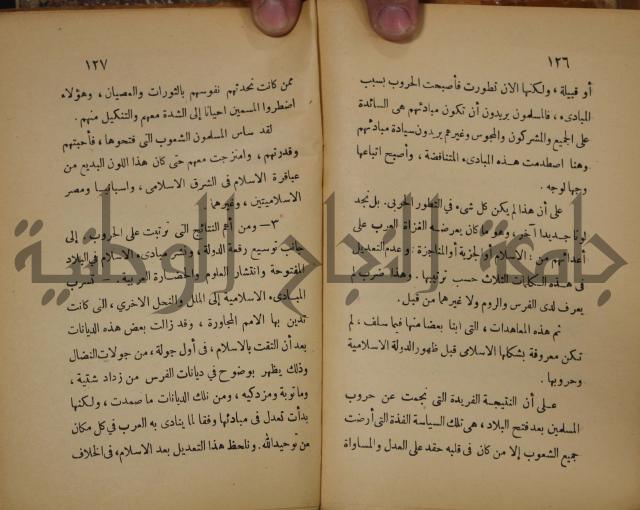 ١٢٦
أو قبيلة ، ولكنها الآن تطورت فأصبحت الحروب بسبب
المبادىء ، فالمسلمون يريدون أن تكون مبادئهم هى السائدة
على الجميع والمشركون والمجوس وغيرهم يريدون سيادة مبادئهم
وهنا اصطدمت هذه المبادىء المتناقضة ، وأصبح اتباعها
وجها لوجه .
على أن هذا لم يكن كل شىء فى التطور الحربى . بل نجد
لونا جديدا آخر ، وهو ما كان يعرضه الغزاة العرب على
أعدائهم من : الاسلام أو الجزية أو المناجزة : وعدم التعديل
فى هذه الثلاث حسب ترتيبها . وهذا ضرب لم
يعرف لدى الفرس والروم ولا غيرهما من قبل .
ثم هذه المعاهدات ، التى أبنا بعضا منها فيما سلف ، لم
تكن معروفة بشكلها الاسلامى قبل ظهور الدولة الاسلامية
وحروبها .
على أن النتيجة الفريدة التى نجمت عن حروب
المسلمين بعد فتح البلاد ، هى تلك السياسة الفذة التى أرضت
جميع الشعوب إلا من كان فى قلبه حقد على العدل والمساواة
١٢٧
ممن كانت تحدثهم نفوسهم بالثورات والعصيان ، وهؤلاء
اضطروا المسلمين احيانا إلى الشدة معهم والتنكيل منهم .
لقد ساس المسلمون الشعوب التى فتحوها ، فأحبتهم
وقدرتهم ، وامتزجت معهم حتى كان هذا اللون البديع من
عباقرة الاسلام فى الشرق الاسلامى ، واسبانيا ومصر
الاسلاميتين ، وغيرهما
٣ — ومن أهم النتائج التى ترتبت على الحروب ، إلى
جانب توسيع رقعة الدولة ، ونشر مبادىء الاسلام فى البلاد
المفتوحة وانتشار العلوم والحضارة العربية . — تسرب
المبادىء الاسلامية إلى الملل والنحل الاخرى ، التى كانت
تدين بها الامم المجاورة ، وقد زالت بعض هذه الديانات
بعد أن التقت بالاسلام ، فى أول جولة ، من جولات النضال
وذلك يظهر بوضوح فى ديانات الفرس من زداد شتية ،
ومانوية ومزدكيه ، ومن تلك الديانات ما صمدت ، ولكنها
بدأت تعدل فى مبادئها وفقا لما ينادى به العرب فى كل مكان
من توحيد الله . ونلحظ هذا التعديل بعد الاسلام ، فى الخلاف
جامعة النجاح الوطنية